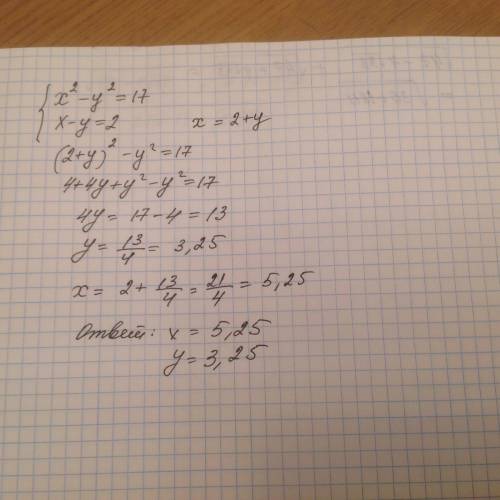 { x² - y² = 17
x - y = 2    x = 2 + y
(2+y)² - y² = 17
4 + 4y + y² - y² = 17
4y = 17 - 4 = 13
y = 13/4 = 3,25
x = 2 + 13/4 = 21/4 = 5,25
Ответ: x = 5,25
y = 3,25